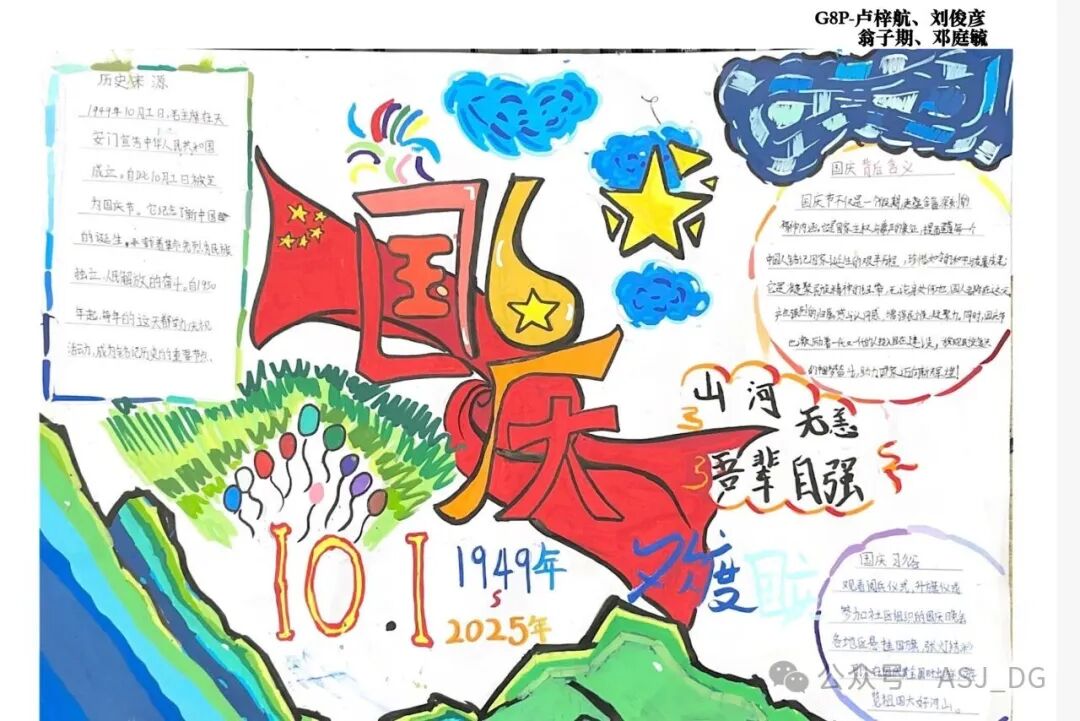 G8P-卢梓航、刘俊彦
翁子期、邓庭毓
历史来源
1949年10月1日，毛主席在天
安门宣告中华人民共和国
成立。自此10月1日被定
为国庆节。它纪念了新中国
的诞生，承载着
独立、人民解放的奋斗。自1950
年起，每年的这天都幼庆祝
活动，成为铭记历史的重要节点。
国庆
10.1
1949年
2025年
欢度国庆
山河
无恙
吾辈自强
国庆背后含义
国庆节不仅是一个假期，更蕴含着深刻的
精神内涵。它是国家主权与尊严的象征，提醒着每一个
中国人铭记国家诞生的艰辛历程，珍惜如今的和平与发展成果
它是凝聚民族精神的纽带，无论身处何地，国人
国庆习俗
观看阅兵仪式，升旗仪式
参加社区组织的国庆晚会
各地区悬挂国旗，张灯结彩
览祖国大好河山。
公众号·ASJ_DG